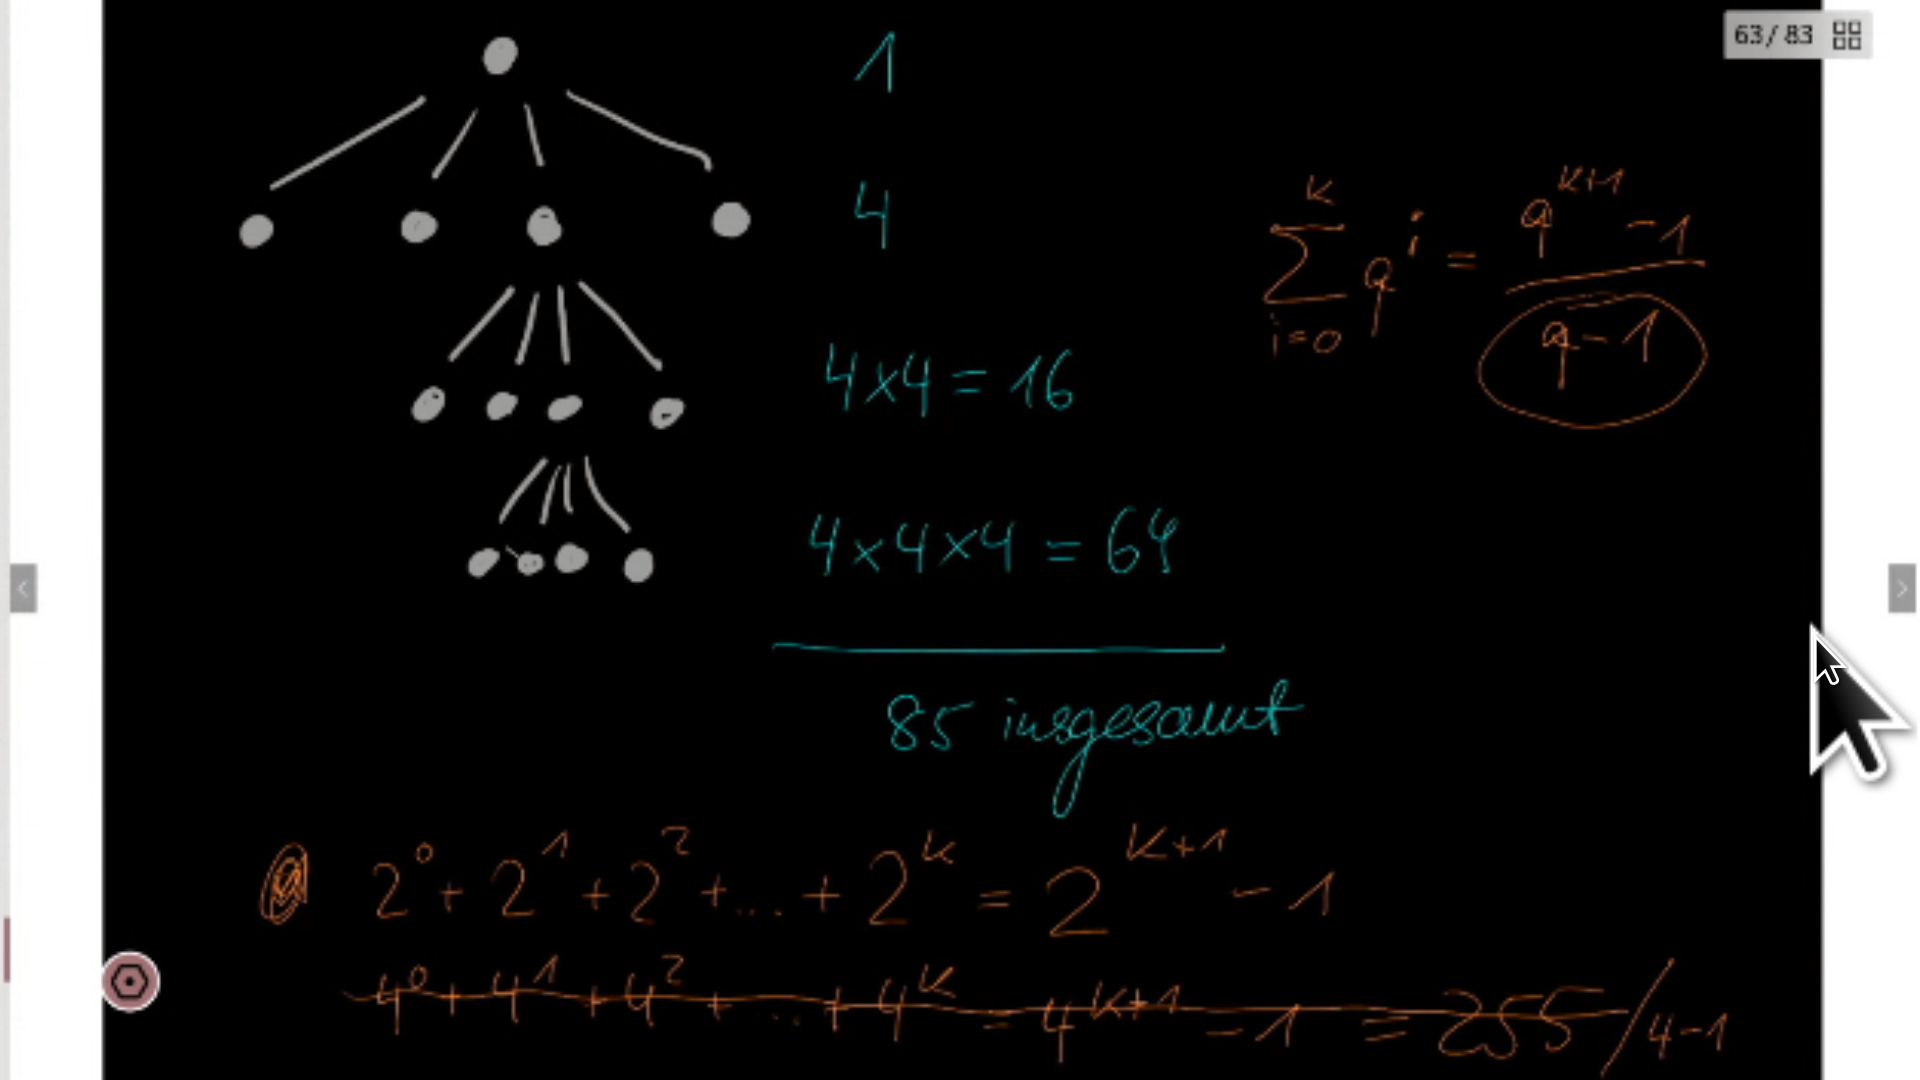 63 / 83
1
4
4×4 = 16
4×4×4 = 64
85 insgesamt
∑_{i=0}^{k} q^i = (q^{k+1} - 1) / (q - 1)
2^0 + 2^1 + 2^2 + ... + 2^k = 2^{k+1} - 1
4^0 + 4^1 + 4^2 + ... + 4^k = 4^{k+1} - 1 = 255 / 4-1